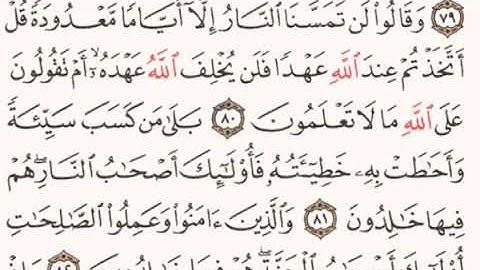 ٧٩ وَقَالُوا۟ لَن تَمَسَّنَا ٱلنَّارُ إِلَّآ أَيَّامًا مَّعْدُودَةً قُلْ
أَتَّخَذْتُمْ عِندَ ٱللَّهِ عَهْدًا فَلَن يُخْلِفَ ٱللَّهُ عَهْدَهُۥٓ ۖ أَمْ تَقُولُونَ
عَلَى ٱللَّهِ مَا لَا تَعْلَمُونَ ٨٠ بَلَىٰ مَن كَسَبَ سَيِّئَةً
وَأَحَٰطَتْ بِهِۦ خَطِيٓـَٔتُهُۥ فَأُو۟لَٰٓئِكَ أَصْحَٰبُ ٱلنَّارِ ۖ هُمْ
فِيهَا خَٰلِدُونَ ٨١ وَٱلَّذِينَ ءَامَنُوا۟ وَعَمِلُوا۟ ٱلصَّٰلِحَٰتِ
أُو۟لَٰٓئِكَ أَصْحَٰبُ ٱلْجَنَّةِ ۖ هُمْ فِيهَا خَٰلِدُونَ ٨٢ وَإِذْ